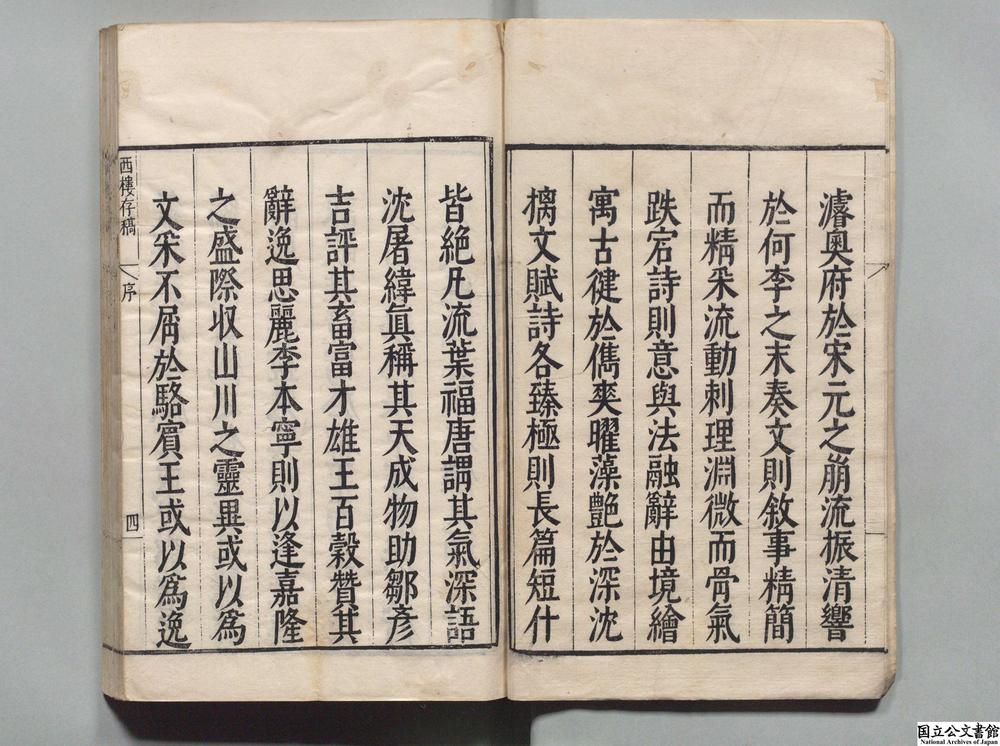 濬奧府於宋元之崩流振清響
於何李之末奏文則敘事精簡
而精采流動刺理淵微而骨氣
跌宕詩則意與法融辭由境繪
寓古健於儁爽曜藻艷於深沈
摛文賦詩各臻極則長篇短什
皆絶凡流葉福唐謂其氣深語
沈屠緯眞稱其天成物助鄒彥
吉評其畜富才雄王百穀贊其
辭逸思麗李本寧則以逢嘉隆
之盛際収山川之靈異或以爲
文采不屑於駱賓王或以爲逸
西樓存稿
序
四
国立公文書館
National Archives of Japan